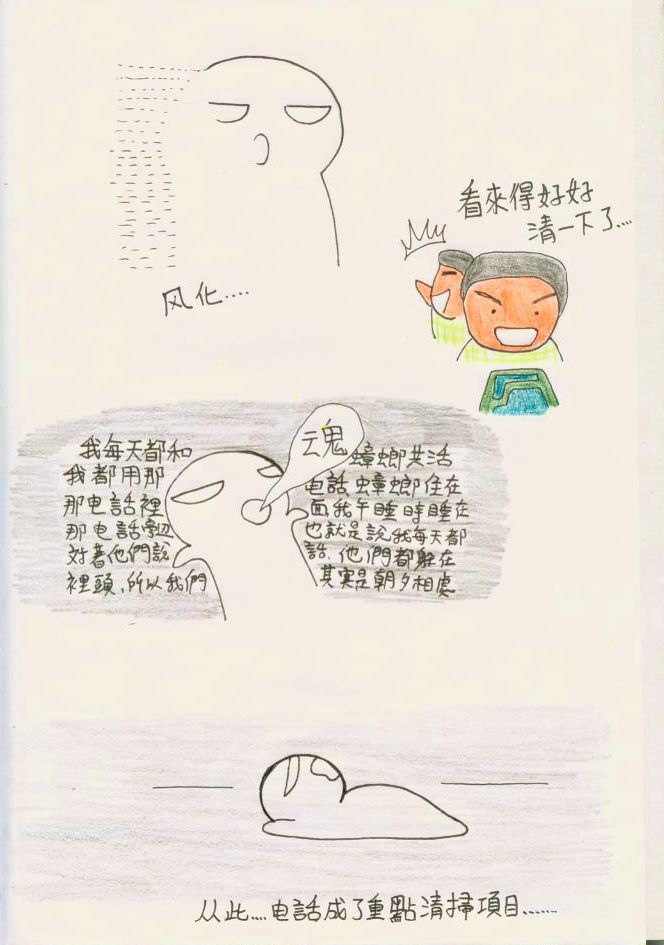 看來得好好
清一下了....
风化....
魂
我每天都和 蟑螂共活
我都用那 电話蟑螂住在
那电話裡 面我午睡時睡在
那电話旁边 也就是説我每天都
对著他們説 話,他們都躲在
裡頭,所以我們 其實是朝夕相處
从此....电話成了重點清掃項目......